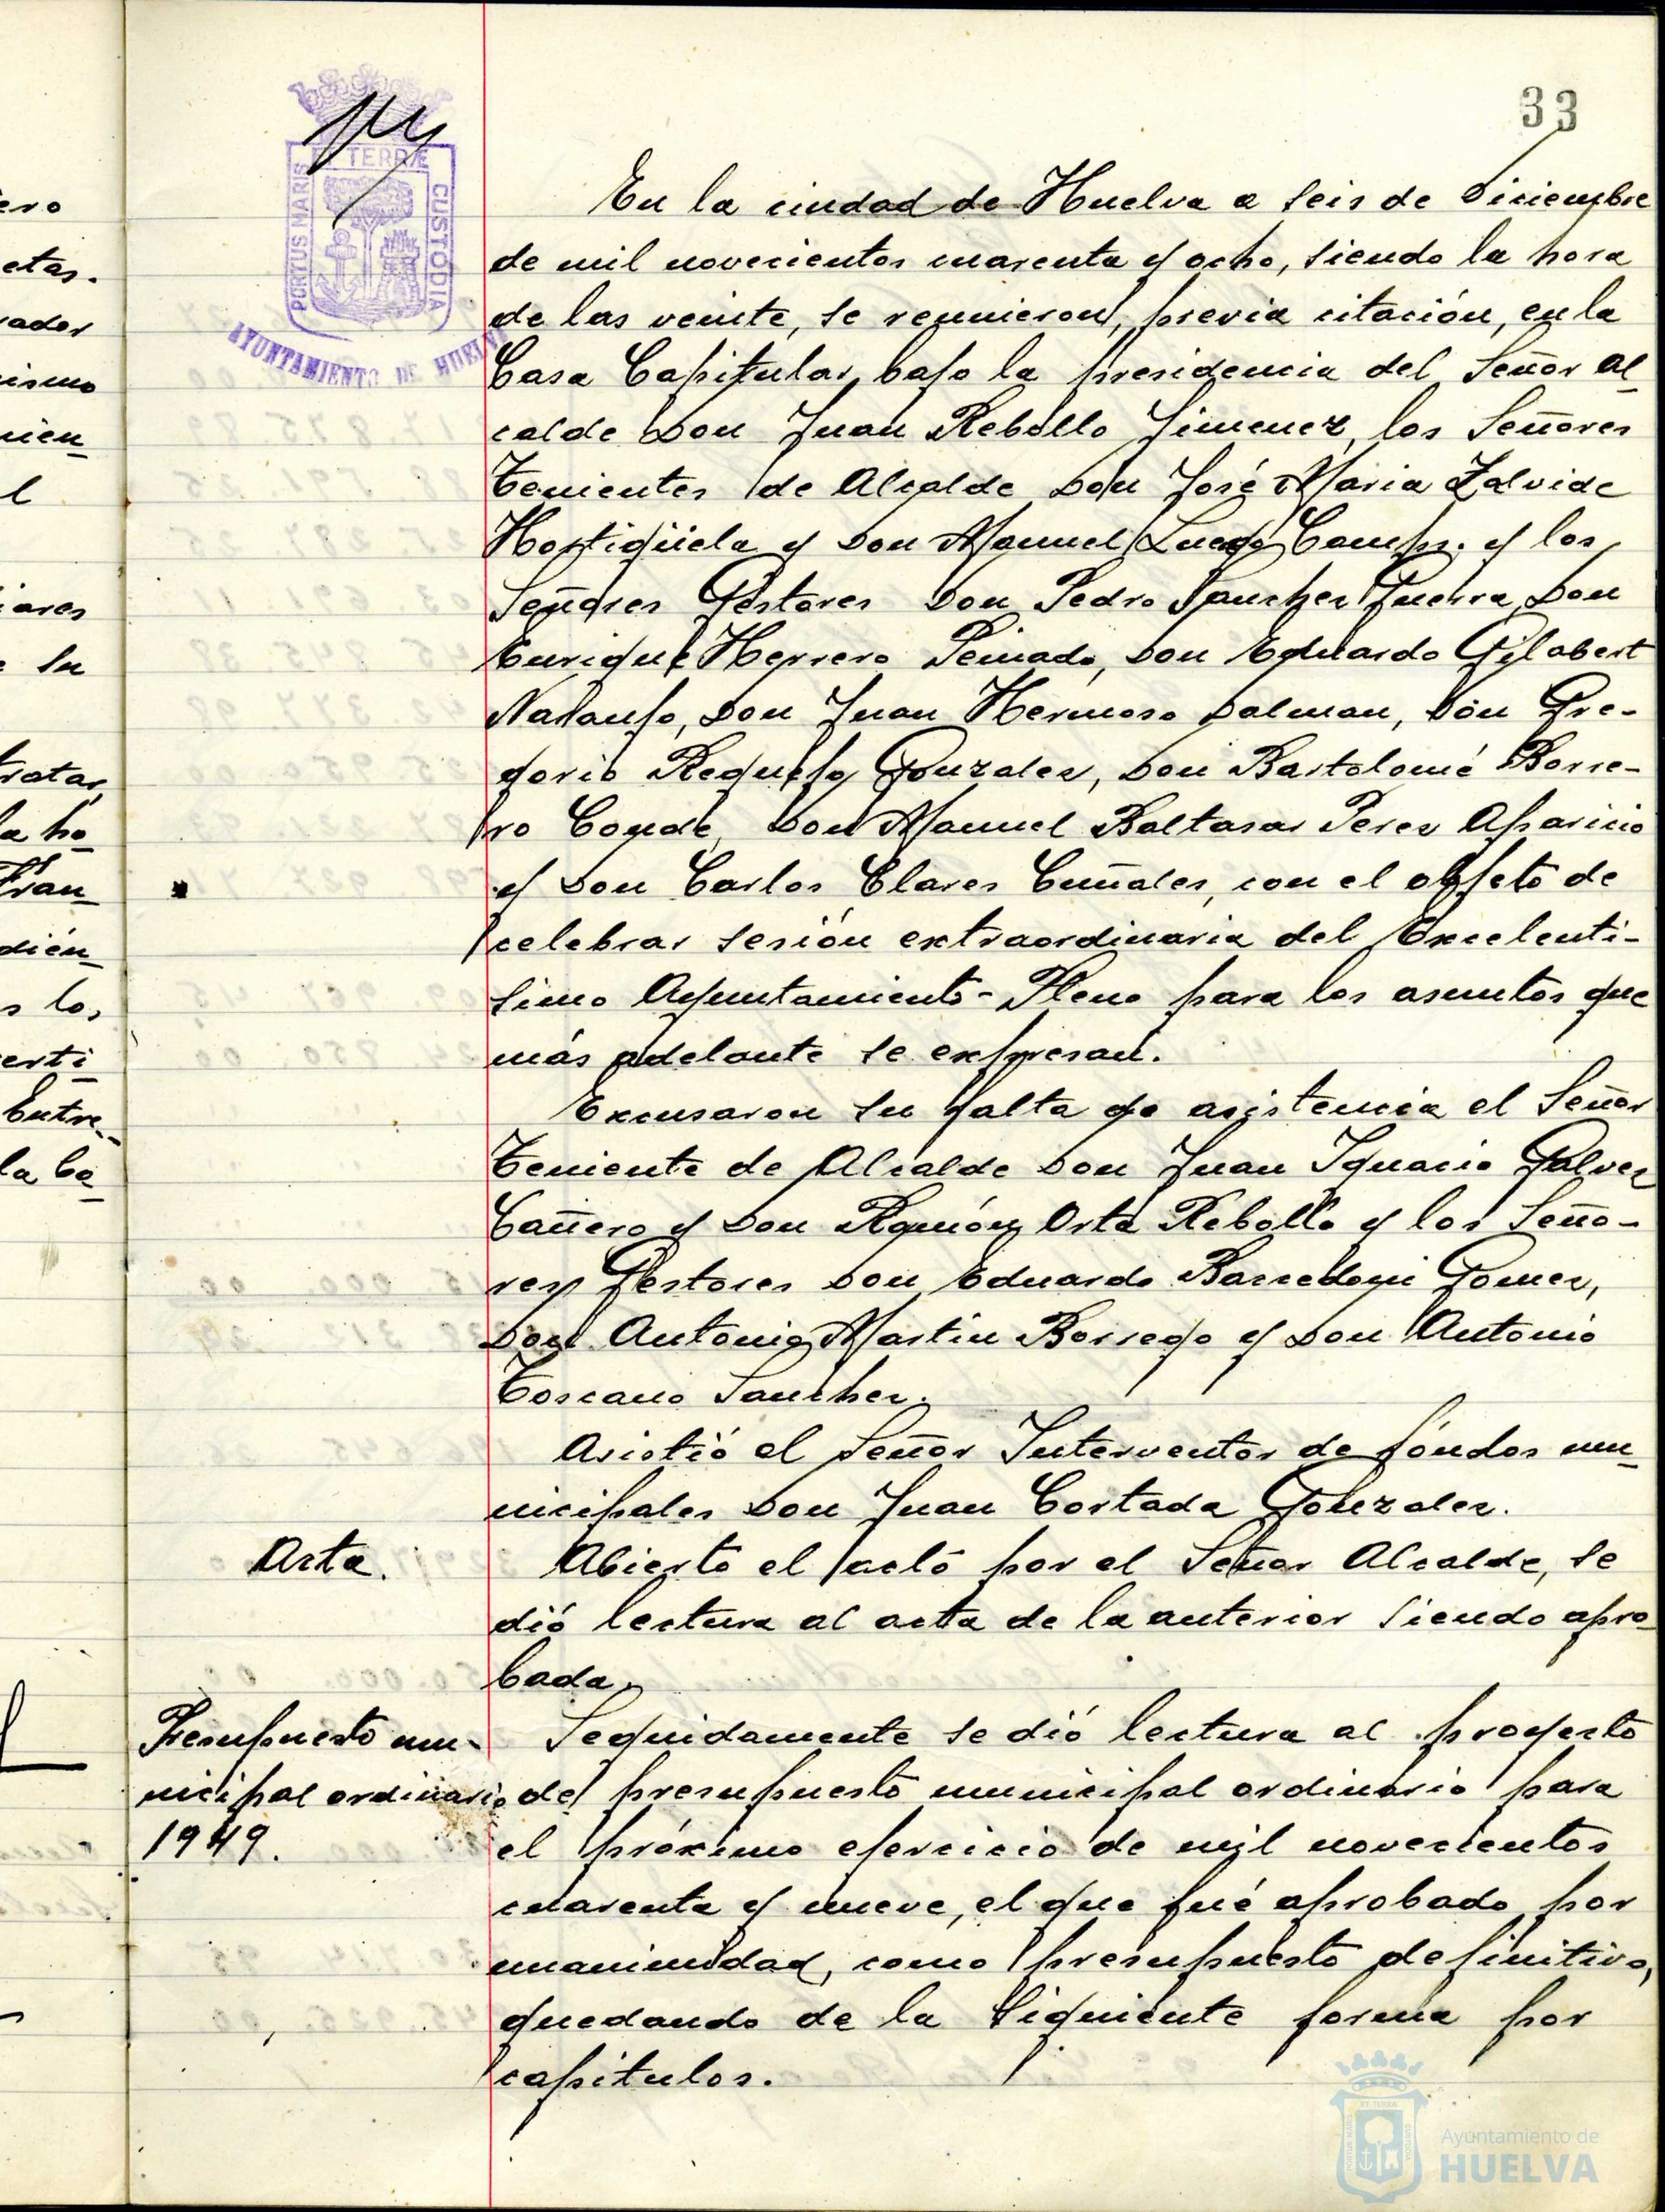 33
PORTUS MARIS
ET TERRÆ
CUSTODIA
AYUNTAMIENTO DE HUELVA
En la ciudad de Huelva a seis de Diciembre
de mil novecientos cuarenta y ocho, siendo la hora
de las veinte, se reunieron, previa citación, en la
Casa Capitular, bajo la presidencia del Señor Al-
calde Don Juan Rebollo Jimenez, los Señores
Tenientes de Alcalde Don José Maria Zalvide
Hortigüela y Don Manuel Luego Camps. y los
Señores Gestores Don Pedro Sanchez Guerra, Don
Enrique Herrero Peinado, Don Eduardo Gilabert
Naranjo, Don Juan Hermoso Dalman, Don Gre-
gorio Requejo Gonzalez, Don Bartolomé Borre-
ro Conde, Don Manuel Baltasar Perez Aparicio
y Don Carlos Clares Cuñales, con el objeto de
celebrar sesión extraordinaria del Excelenti-
simo Ayuntamiento-Pleno para los asuntos que
más adelante se expresan.
Excusaron su falta de asistencia el Señor
Teniente de Alcalde Don Juan Ignacio Galvez
Cañero y Don Ramón Orta Rebollo y los Seño-
res Gestores Don Eduardo Gomez,
Don Antonio Martin Borrego y Don Antonio
Toscano Sanchez.
Asistió el Señor Interventor de fóndos mu-
nicipales Don Juan Cortada Gonzalez.
Acta.
Abierto el acto por el Señor Alcalde, se
dió lectura al acta de la anterior siendo apro-
bada.
Presupuesto mu-
nicipal ordinario
1949.
Seguidamente se dió lectura al proyecto
del presupuesto municipal ordinario para
el próximo ejercicio de mil novecientos
cuarenta y nueve, el que fué aprobado por
unanimidad, como presupuesto definitivo,
quedando de la siguiente forma por
capitulos.
ero
etas.
l
iares
e su
tratar
la ho
Fran
dien
s los
erti
Entre
la Ca
Ayuntamiento de
HUELVA